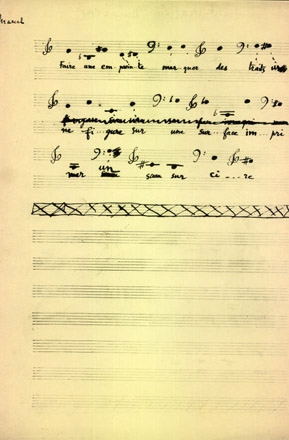 Marcel
Faire une em prein te mar quer des traits
ne fi gure sur une sur-- face im... pri
mer un sceau sur ci -- re